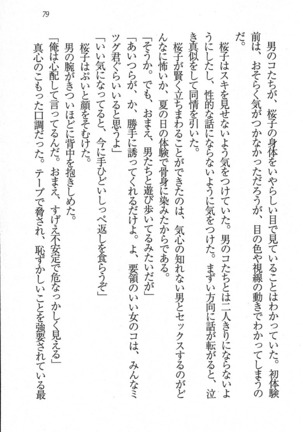 79
男のコたちが、桜子の身体をいやらしい目で見ていることはわかっていた。初体験
前は、おそらく気がつかなかっただろうが、目の色や視線の動きでわかってしまうの
だ。
桜子はスキを見せないよう気をつけていた。男のコたちとは二人きりにならないよ
うにしたし、性的な話にならないように気をつけた。まずい方向に話が転がると、泣
き真似をして同情を引いた。
桜子が賢く立ちまわることができたのは、気心の知れない男とセックスするのがど
んなに怖いか、夏の日の体験で骨身に染みたからである。
「そうか。でも、おまえ、男たちと遊び歩いてるみたいだが」
「あいつらが、か、勝手に誘ってくれるだけよ。よ、要領のいい女のコは、みんなミ
ツグ君ぐらいいると思うよ」
「いい気になってると、今に手ひどいしっぺ返しを食らうぞ」
桜子はぷいと顔をそむけた。
男の腕がきついほどに背中を抱きしめた。
「俺は心配して言ってるんだ。おまえ、すげえ不安定で危なっかしく見える」
真心のこもった口調だった。テープで脅され、恥ずかしいことを強要されている最